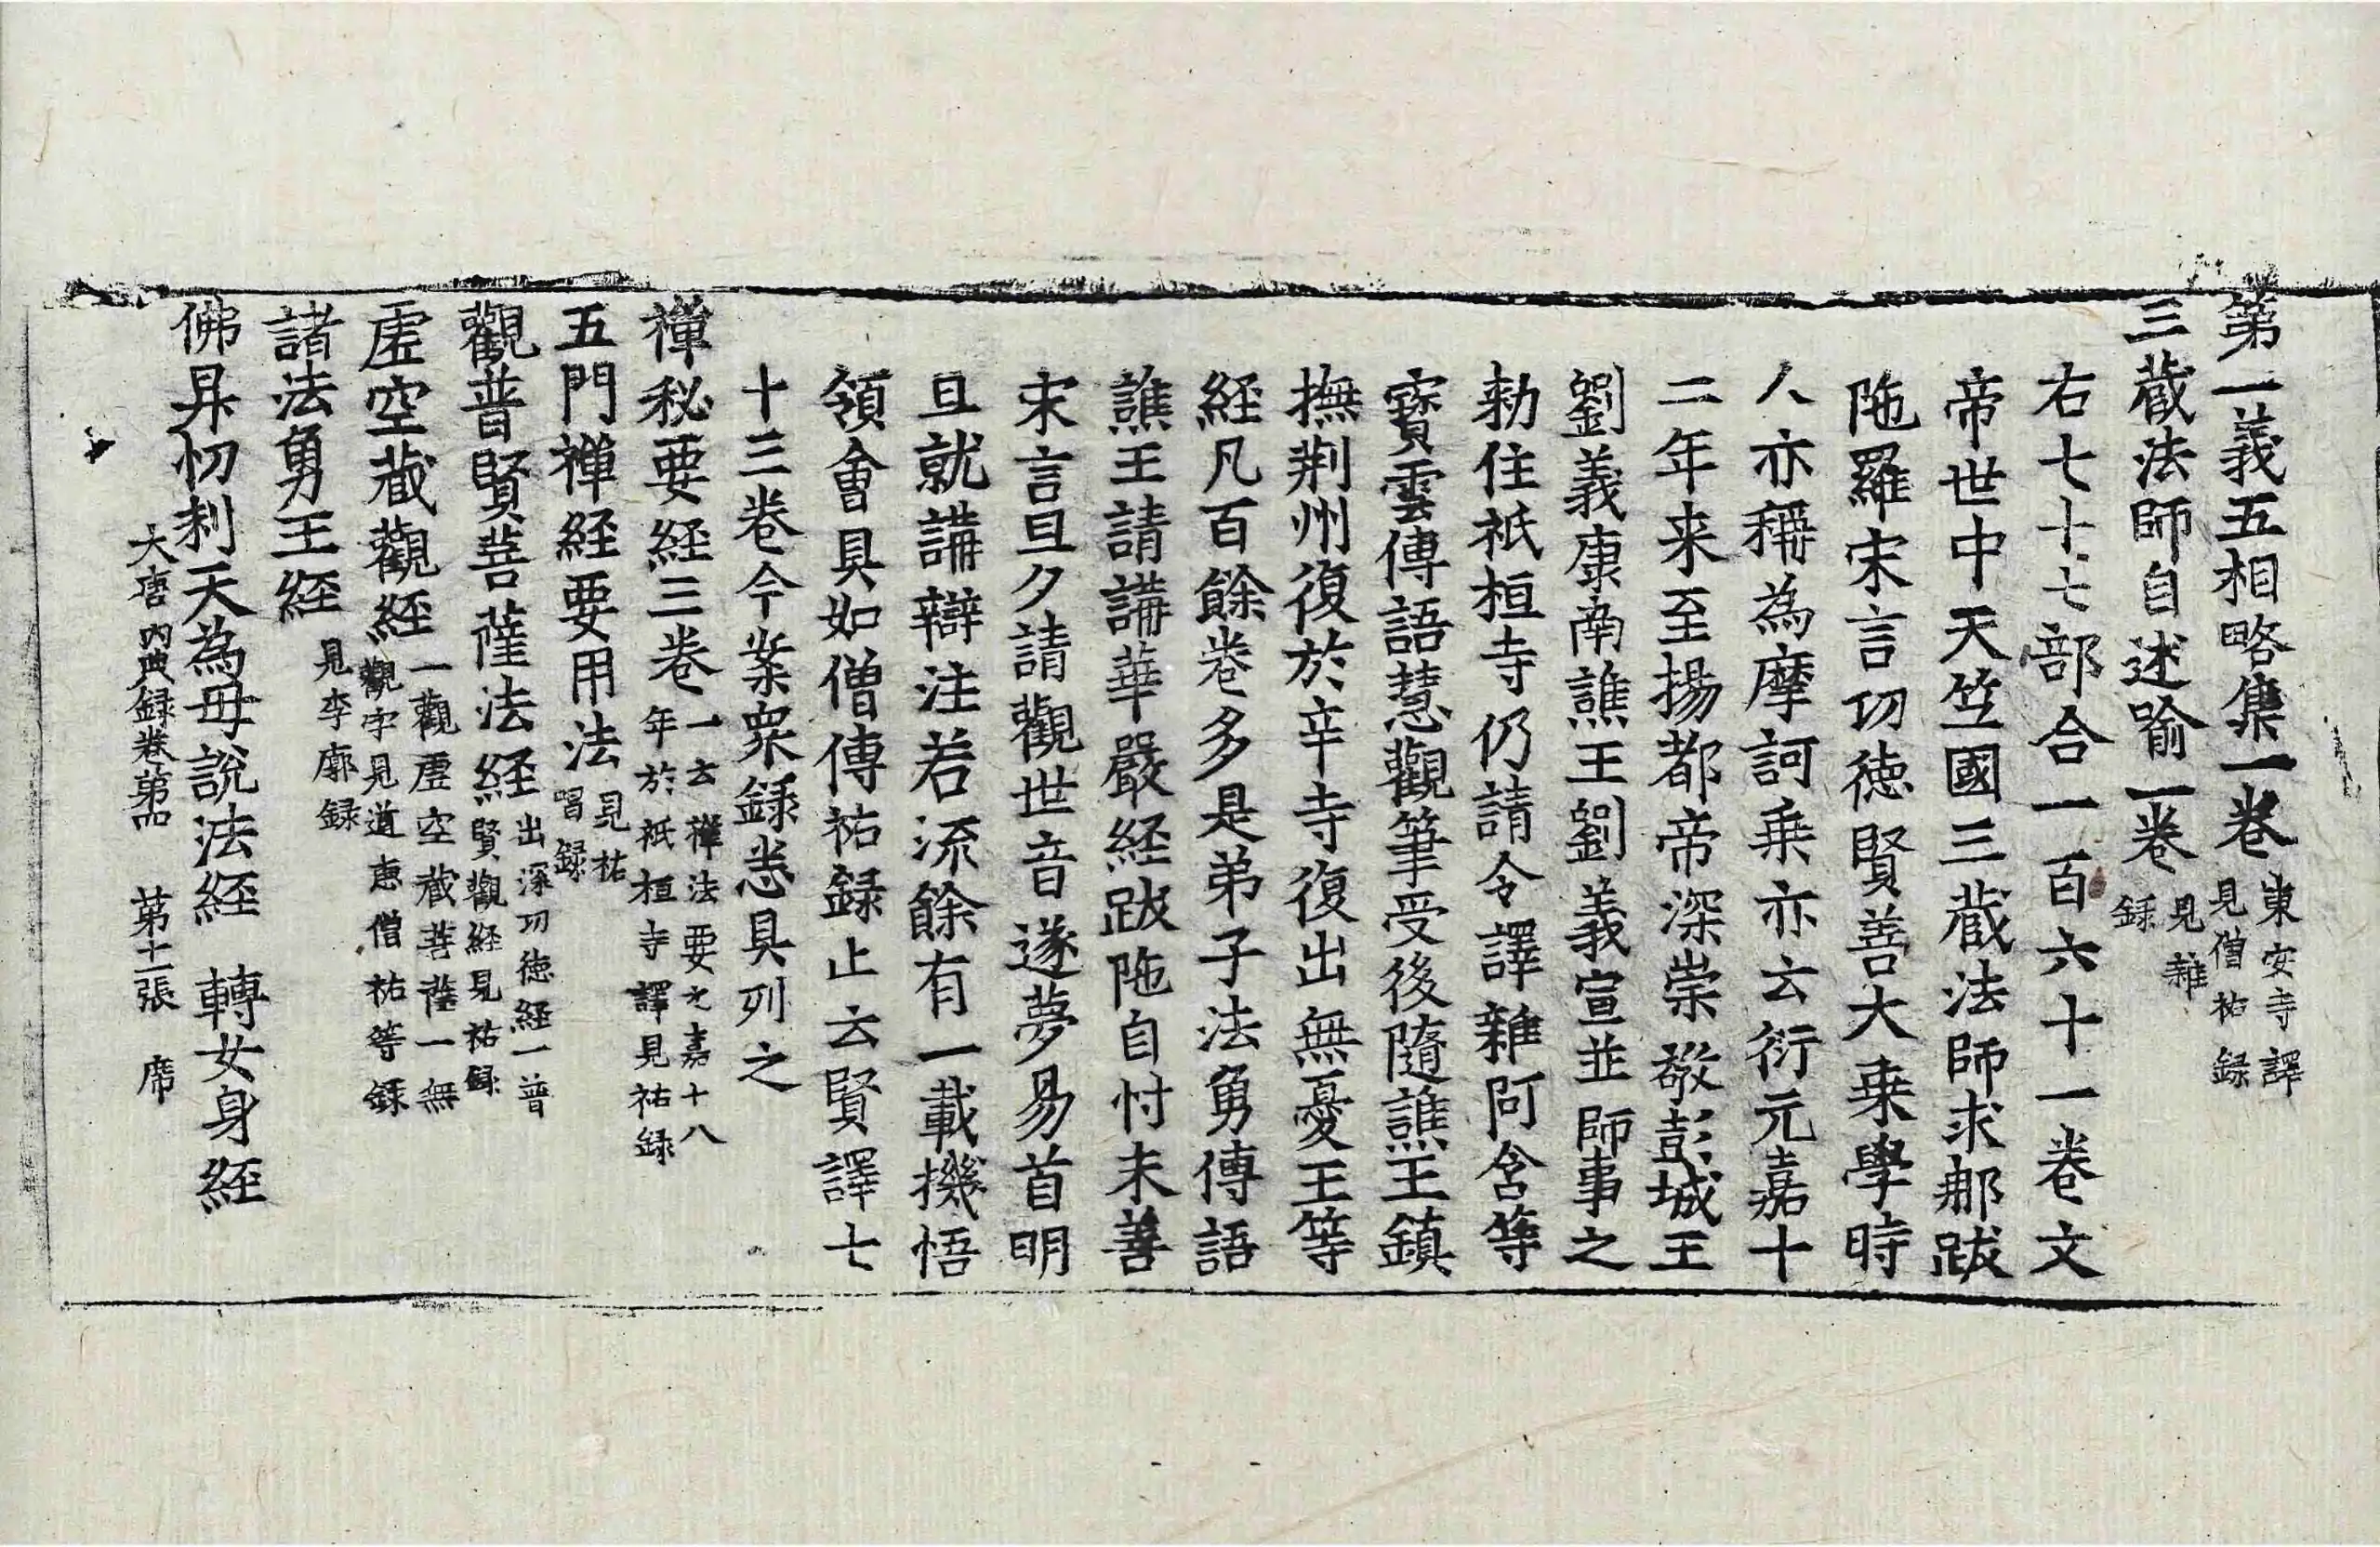 第一義五相略集一卷東安寺譯見僧祐録
三藏法師自述喻一卷見雜録
右七十七部合一百六十一卷文
帝世中天竺國三藏法師求那跋
陁羅宋言功徳賢善大乗學時
人亦稱為摩訶乗亦云衍元嘉十
二年来至揚都帝深崇敬彭城王
劉義康南譙王劉義宣並師事之
勑住祇桓寺仍請令譯雜阿含等
寳雲傳語慧觀筆受後隨譙王鎮
撫荆州復於辛寺復出無憂王等
経凡百餘卷多是弟子法勇傳語
譙王請講華嚴経跋陁自忖未善
宋言旦夕請觀世音遂夢易首明
旦就講辯注若流餘有一載機悟
領會具如僧傳祐録止云賢譯七
十三卷今案衆録悉具列之
禅秘要経三卷一云禅法要元嘉十八年於祇桓寺譯見祐録
五門禅経要用法見祐唱録
觀普賢菩薩法経出深功徳経一普賢觀経見祐録
虛空藏觀経一觀虛空藏菩薩一無觀字見道恵僧祐等録
諸法勇王経見李廓録
佛昇忉利天為母說法経 轉女身経
大唐内典録卷第四 第十一張 席